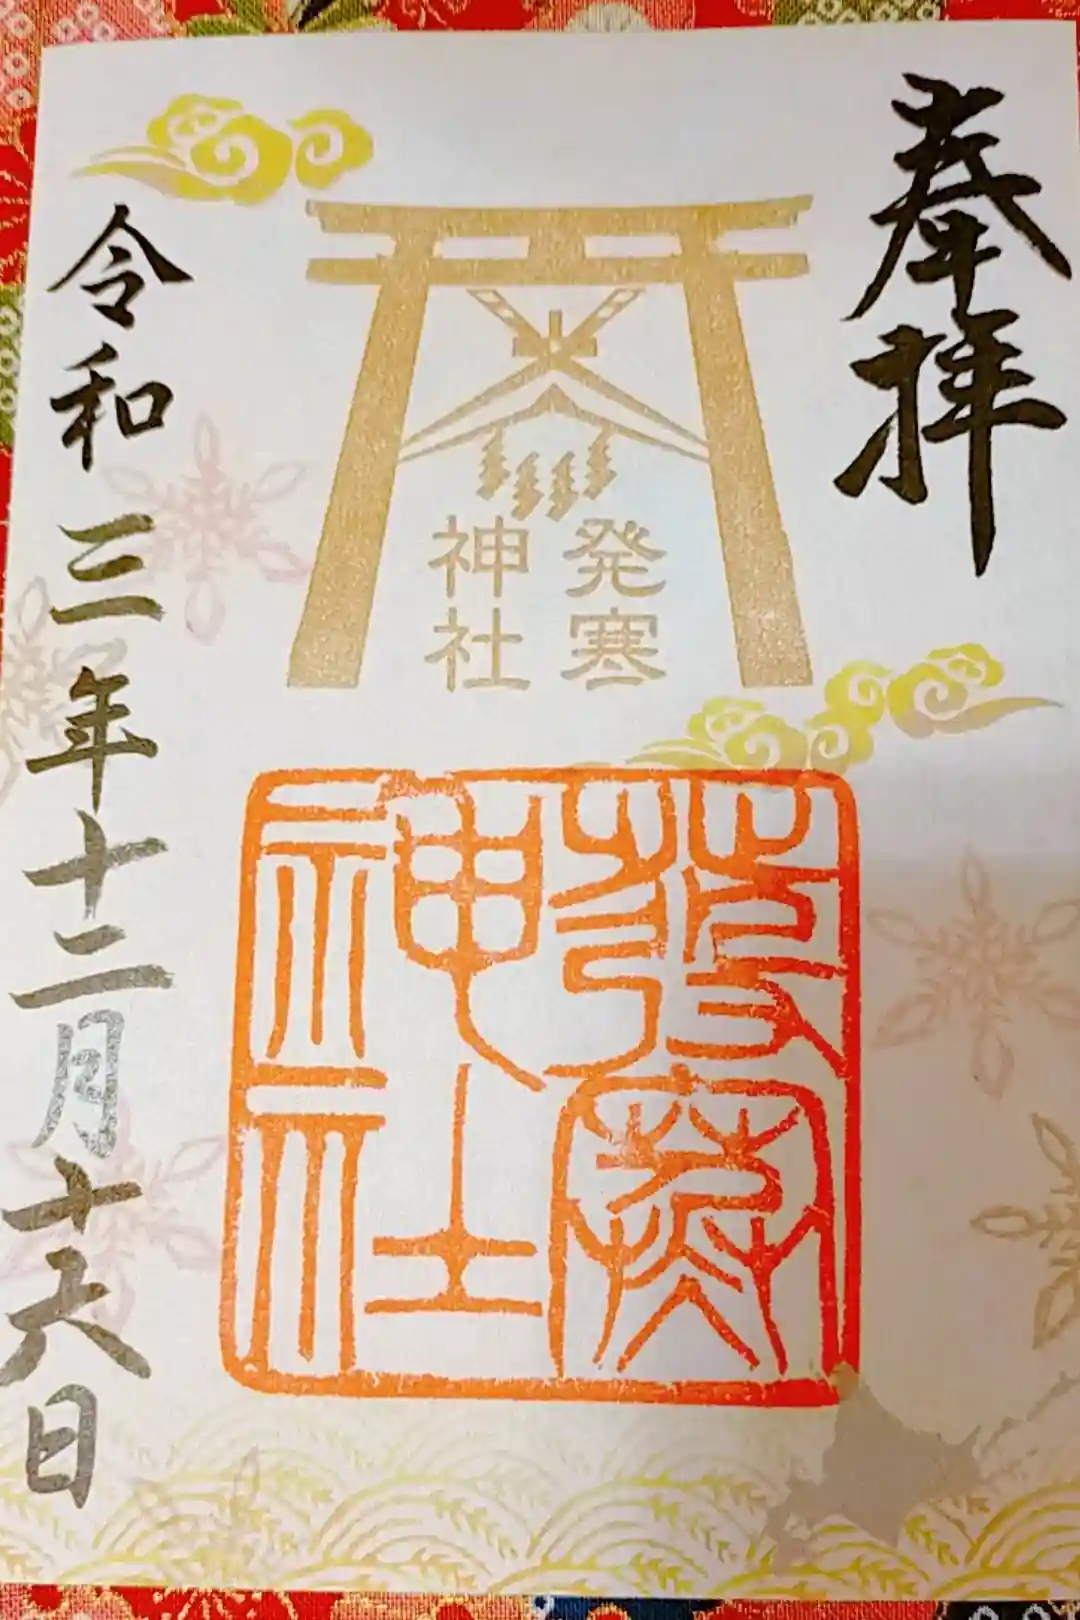 奉拝
発寒
神社
発寒
神社
令和三年十二月十六日